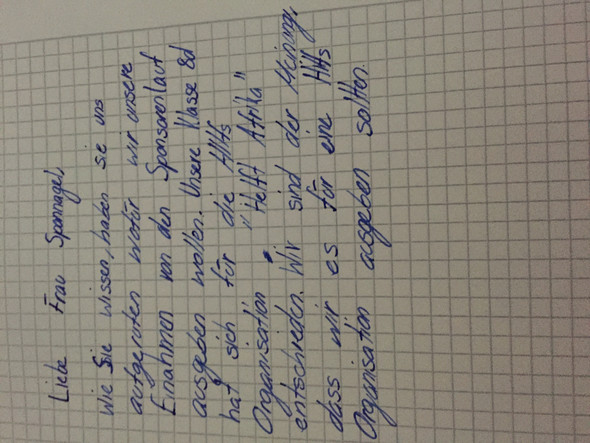 Liebe Frau Spannagel,
Wie Sie wissen, haben sie uns
aufgerufen wofür wir unsere
Einahmen von den Sponsorenlauf
ausgeben wollen. Unsere Klasse 8d
hat sich für die Hilfs
Organisation "Helft Afrika"
entschrieden. Wir sind der Meinung,
dass wir es für eine Hilfs
Organisation ausgeben sollten.